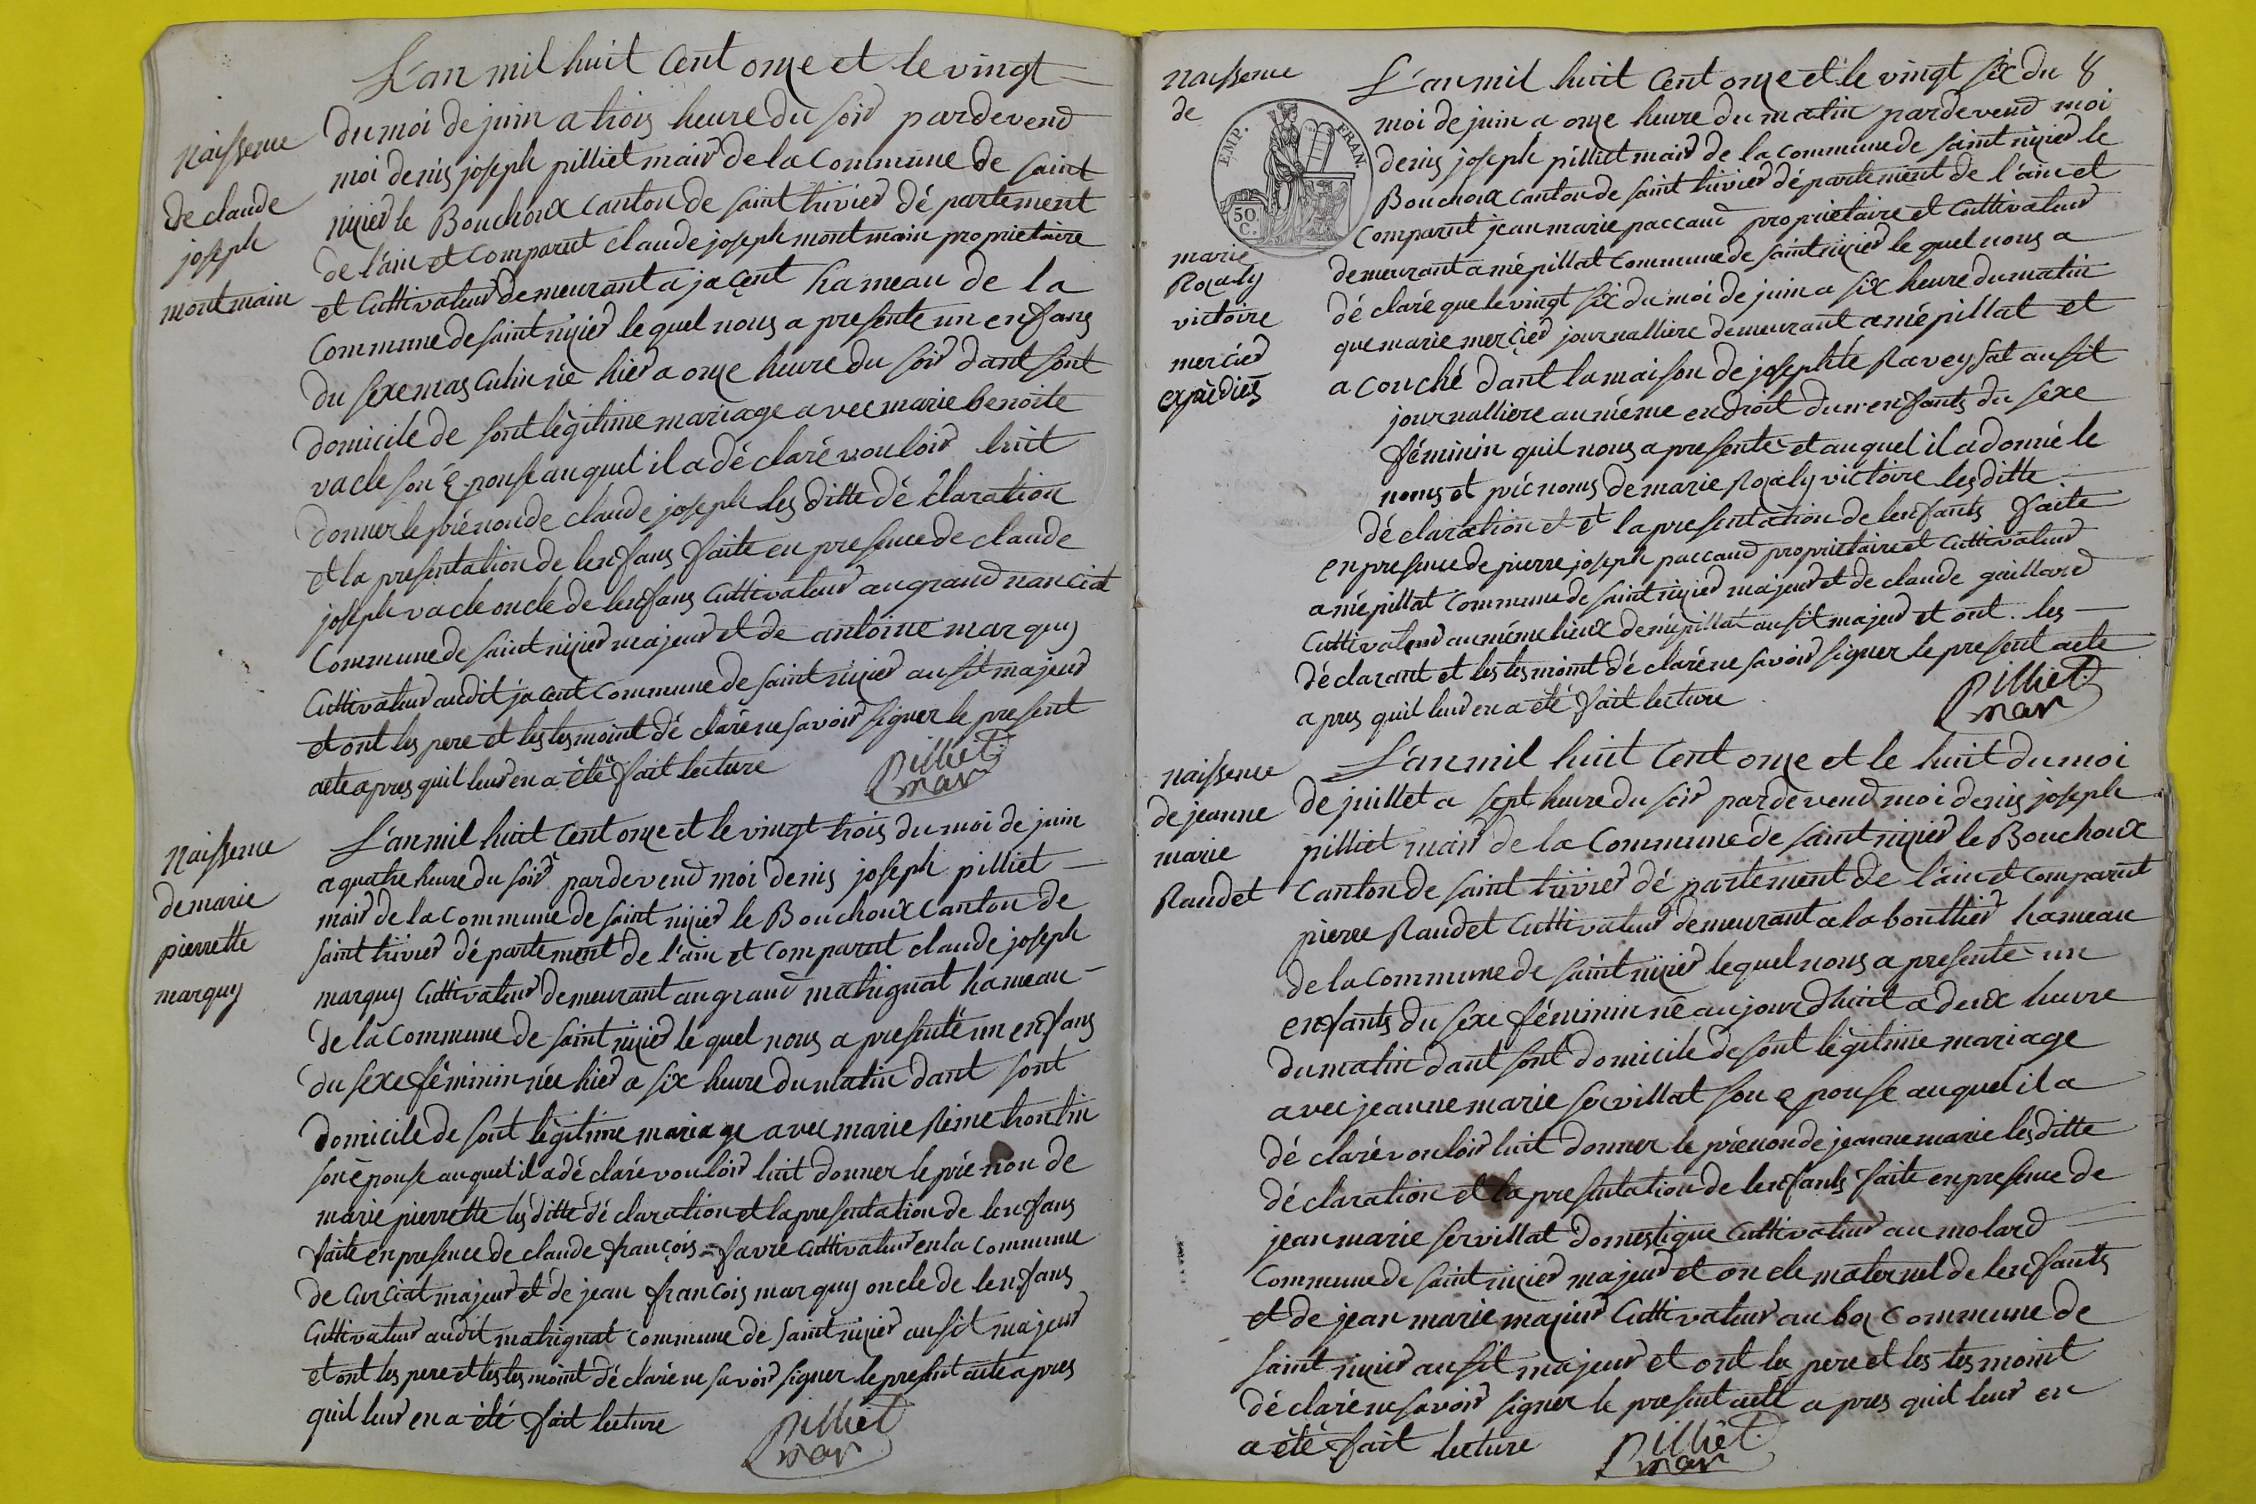 L'an mil huit Cent onze et le vingt
Naissence
de claude
joseph
montmain
du moi de juin a trois heure du soir pardevend
moi denis joseph pilliet mair de la Commune de saint
nizier le Bouchoux canton de saint trivier dé partement
de l'ain et Comparut claude joseph montmain proprietaire
et Cultivateur demeurant a jacent hameau de la
Commune de saint nizier le quel nous a presente un enfans
du sexe masculin né hier a onze heure du soir dant sont
domicile de sont légitime mariage avec marie benoite
vacle son é pouse auquel il a dé claré vouloir luit
donner le prénon de claude joseph les ditte dé claration
et la presentation de lenfans faite en presence de claude
joseph vacle oncle de lenfans Cultivateur au grand nanciat
Commune de saint nizier majeur et de antoine marquy
Cultivateur audit jacent commune de saint nizier ausit majeur
et ont les pere et les tesmoint dé claré ne savoir signer le present
acte apres quil leur en a été fait lecture
Pilliet
mair
Naissence
de marie
pierrette
marquy
L'an mil huit Cent onze et le vingt trois du moi de juin
a quatre heure du soir pardevend moi denis joseph pilliet
mair de la commune de saint nizier le Bouchoux Canton de
saint trivier dé partement de l'ain et Comparut claude joseph
marquy Cultivateur demeurant au grand matrignat hameau
de la Commune de saint nizier le quel nous a presenté un enfans
du sexe féminin née hier a six heure du matin dant sont
domicile de sont légitime mariage avec marie Reine trontin
son épouse auquel il a dé claré vouloir luit donner le pré non de
marie pierrette les ditte dé claration et la presentation de lenfans
faite en presence de claude françois favre Cultivateur en la commune
de Curciat majeur et de jean françois marquy oncle de lenfans
Cultivateur audit matrignat commune de saint nizier ausit majeur
et ont les pere et les tesmoint dé claré ne savoir signer le present acte apres
quil leur en a été fait lecture
Pilliet
mair
8
Naissence
de
EMP. FRAN.
50 C.
marie
Rozaly
victoire
mercier
expédiés
L'an mil huit Cent onze et le vingt six du
moi de juin a onze heure du matin pardevend moi
denis joseph pilliet mair de la commune de saint nizier le
Bouchoux canton de saint trivier dé partement de l'ain et
comparut jean marie paccaud proprietaire et Cultivateur
demeurant a mépillat commune de saint nizier le quel nous a
dé claré que le vingt six du moi de juin a six heure du matin
que marie mercier journalliere demeurant a mépillat et
a couché dant la maison de josephte Raveyfat ausit
journalliere au même endroit dun enfants du sexe
féminin quil nous a presenté et auquel il a donné le
noms et prénoms de marie Rozaly victoire les ditte
dé claration et et la presentation de lenfants faite
en presence de pierre joseph paccaud proprietaire et Cultivateur
a mépillat commune de saint nizier majeur et de claude gaillard
Cultivateur au même lieux de mépillat ausit majeur et ont les
déclarant et les tesmoint dé claré ne savoir signer le present acte
a pres quil leur en a été fait lecture
Pilliet
mair
Naissence
de jeanne
marie
Raudet
L'an mil huit Cent onze et le huit du moi
de juillet a sept heure du soir pardevend moi denis joseph
pilliet mair de la Commune de saint nizier le Bouchoux
Canton de saint trivier dé partement de l'ain et comparut
pierre Raudet Cultivateur demeurant a la bouttier hameau
de la commune de saint nizier lequel nous a presenté un
enfants du sexe féminin né aujourdhuit a deux heure
du matin dant sont domicile de sont légitime mariage
avec jeanne marie servillat son é pouse auquel il a
dé claré vouloir luit donner le prénon de jeanne marie les ditte
dé claration et la presentation de lenfants faite en presence de
jean marie servillat domestique cultivateur au molard
Commune de saint nizier majeur et oncle maternel de lenfants
et de jean marie Cultivateur au boz commune de
saint nizier ausit majeur et ont les pere et les tesmoint
dé claré ne savoir signer le present acte a pres quil leur en
a été fait lecture
Pilliet
mair